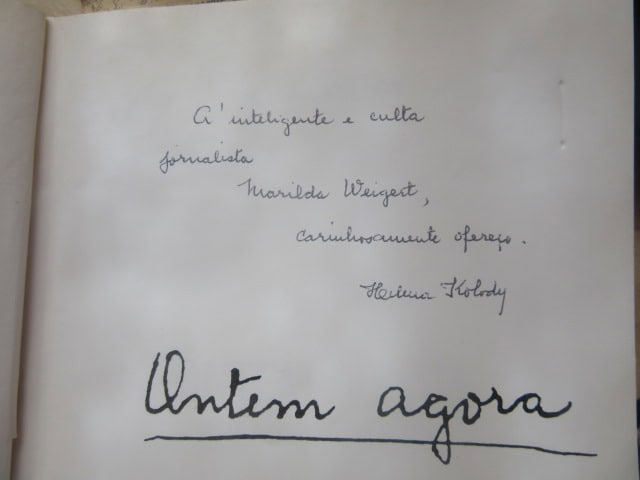 A' inteligente e culta
jornalista
Marilda Weigert,
carinhosamente ofereço.
Helena Kolody
Ontem agora